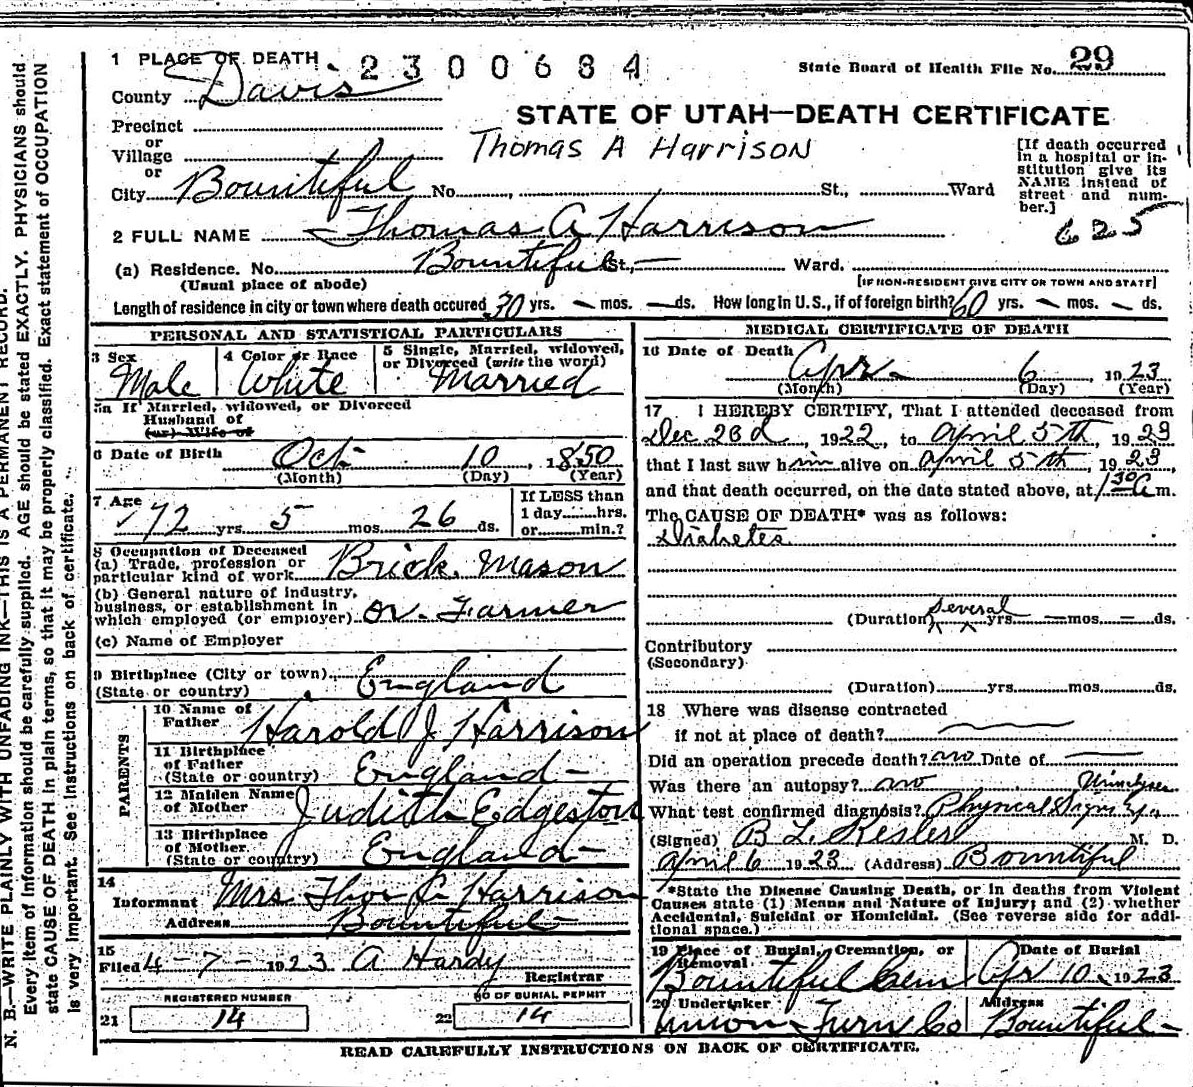 1 PLACE OF DEATH 2300684 State Board of Health File No. 29
County Davis
STATE OF UTAH—DEATH CERTIFICATE
Precinct
or
Village
or
City Bountiful No. , St., Ward
Thomas A Harrison
[If death occurred
in a hospital or in-
stitution give its
NAME instead of
street and num-
ber.]
625
2 FULL NAME Thomas A Harrison
(a) Residence. No. Bountiful St., — Ward.
(Usual place of abode) [IF NON-RESIDENT GIVE CITY OR TOWN AND STATE]
Length of residence in city or town where death occured 30 yrs. — mos. — ds. How long in U.S., if of foreign birth? 60 yrs. — mos. — ds.
PERSONAL AND STATISTICAL PARTICULARS
3 Sex
Male
4 Color or Race
White
5 Single, Married, widowed,
or Divorced (write the word)
Married
5a If Married, widowed, or Divorced
Husband of
(or) Wife of
6 Date of Birth Oct 10, 1850
(Month) (Day) (Year)
7 Age
72 yrs. 5 mos. 26 ds.
If LESS than
1 day hrs.
or min.?
8 Occupation of Deceased
(a) Trade, profession or
particular kind of work Brick Mason
(b) General nature of industry,
business, or establishment in
which employed (or employer) or Farmer
(c) Name of Employer
9 Birthplace (City or town)
(State or country) England
PARENTS
10 Name of
Father Harold J Harrison
11 Birthplace
of Father
(State or country) England —
12 Maiden Name
of Mother Judith Edgeston
13 Birthplace
of Mother.
(State or country) England —
14
Informant Mrs Thos A Harrison
Address Bountiful
15
Filed 4-7-1923 A Hardy
Registrar
REGISTERED NUMBER
21 14
NO OF BURIAL PERMIT
22 14
MEDICAL CERTIFICATE OF DEATH
16 Date of Death
Apr. 6, 1923
(Month) (Day) (Year)
17 I HEREBY CERTIFY, That I attended deceased from
Dec 23d, 1922, to April 5th, 1923
that I last saw him alive on April 5th, 1923,
and that death occurred, on the date stated above, at 1 30 A m.
The CAUSE OF DEATH* was as follows:
Diabetes
(Duration) Several yrs — mos. — ds.
Contributory
(Secondary)
(Duration) yrs. mos. ds.
18 Where was disease contracted
if not at place of death?
Did an operation precede death? no Date of —
Was there an autopsy? no
What test confirmed diagnosis? Physical Signs
(Signed) B L Kesler M. D.
April 6 1923 (Address) Bountiful
*State the Disease Causing Death, or in deaths from Violent
Causes state (1) Means and Nature of Injury; and (2) whether
Accidental, Suicidal or Homicidal. (See reverse side for addi-
tional space.)
19 Place of Burial, Cremation, or
Removal
Bountiful Cem
Date of Burial
Apr 10 1923
20 Undertaker
Union Furn Co
Address
Bountiful —
READ CAREFULLY INSTRUCTIONS ON BACK OF CERTIFICATE.
N. B.—WRITE PLAINLY WITH UNFADING INK—THIS IS A PERMANENT RECORD.
Every item of information should be carefully supplied. AGE should be stated EXACTLY. PHYSICIANS should
state CAUSE OF DEATH in plain terms, so that it may be properly classified. Exact statement of OCCUPATION
is very important. See instructions on back of certificate.